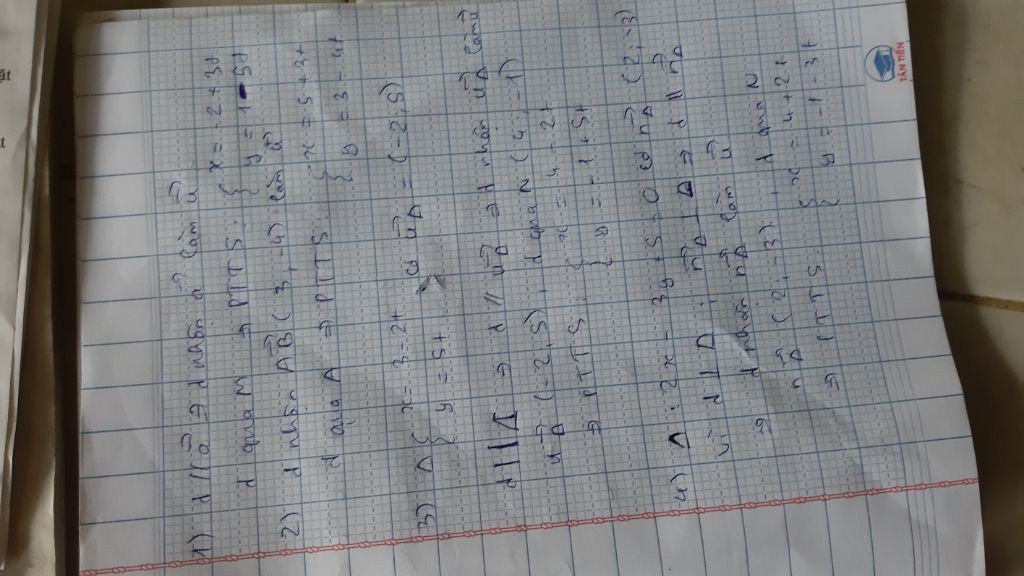 1) d // a⃗ ⇒ d nhận a⃗ làm u⃗
d qua M ⇒ PTTS: { x = -2 + 3t
{ y = 1 - 5t
2) d nhận AB⃗ (3, -4) làm u⃗
d qua A ⇒ PTTS { x = 5 + 3t
{ y = 3 - 4t
3) Δ { x = 3 - 2t có u⃗Δ = (-2, 5)
{ y = 5t
d // Δ ⇒ d // u⃗Δ ⇒ d nhận u⃗Δ làm u⃗
u⃗Δ (-2, 5), d qua N (4, -1)
⇒ PTTS: { x = 4 - 2t
{ y = -1 + 5t
4) Δ: 2x - 3y + 5 = 0 có n⃗Δ (2, -3)
vì d ⊥ Δ, n⃗Δ ⊥ Δ ⇒ d // n⃗Δ
⇒ d nhận n⃗Δ làm u⃗
n⃗Δ (2, -3), d qua N
⇒ PTTS: { x = 4 + 2t
{ y = -1 - 3t
TÂN TIẾN